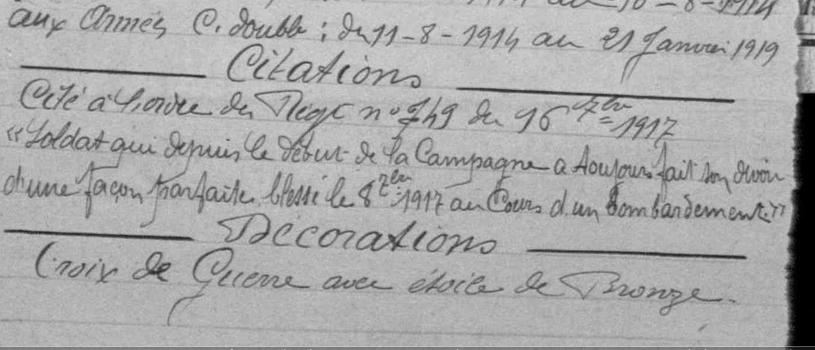 10-8-1914
aux Armées C. double : du 11-8-1914 au 21 Janvier 1919
Citations
Cité à l'ordre du Régt n° 749 du 16 7bre 1917
"Soldat qui depuis le début de la Campagne a toujours fait son devoir
d'une façon parfaite, blessé le 8 7bre 1917 au Cours d'un bombardement."
Décorations
Croix de Guerre avec étoile de Bronze.